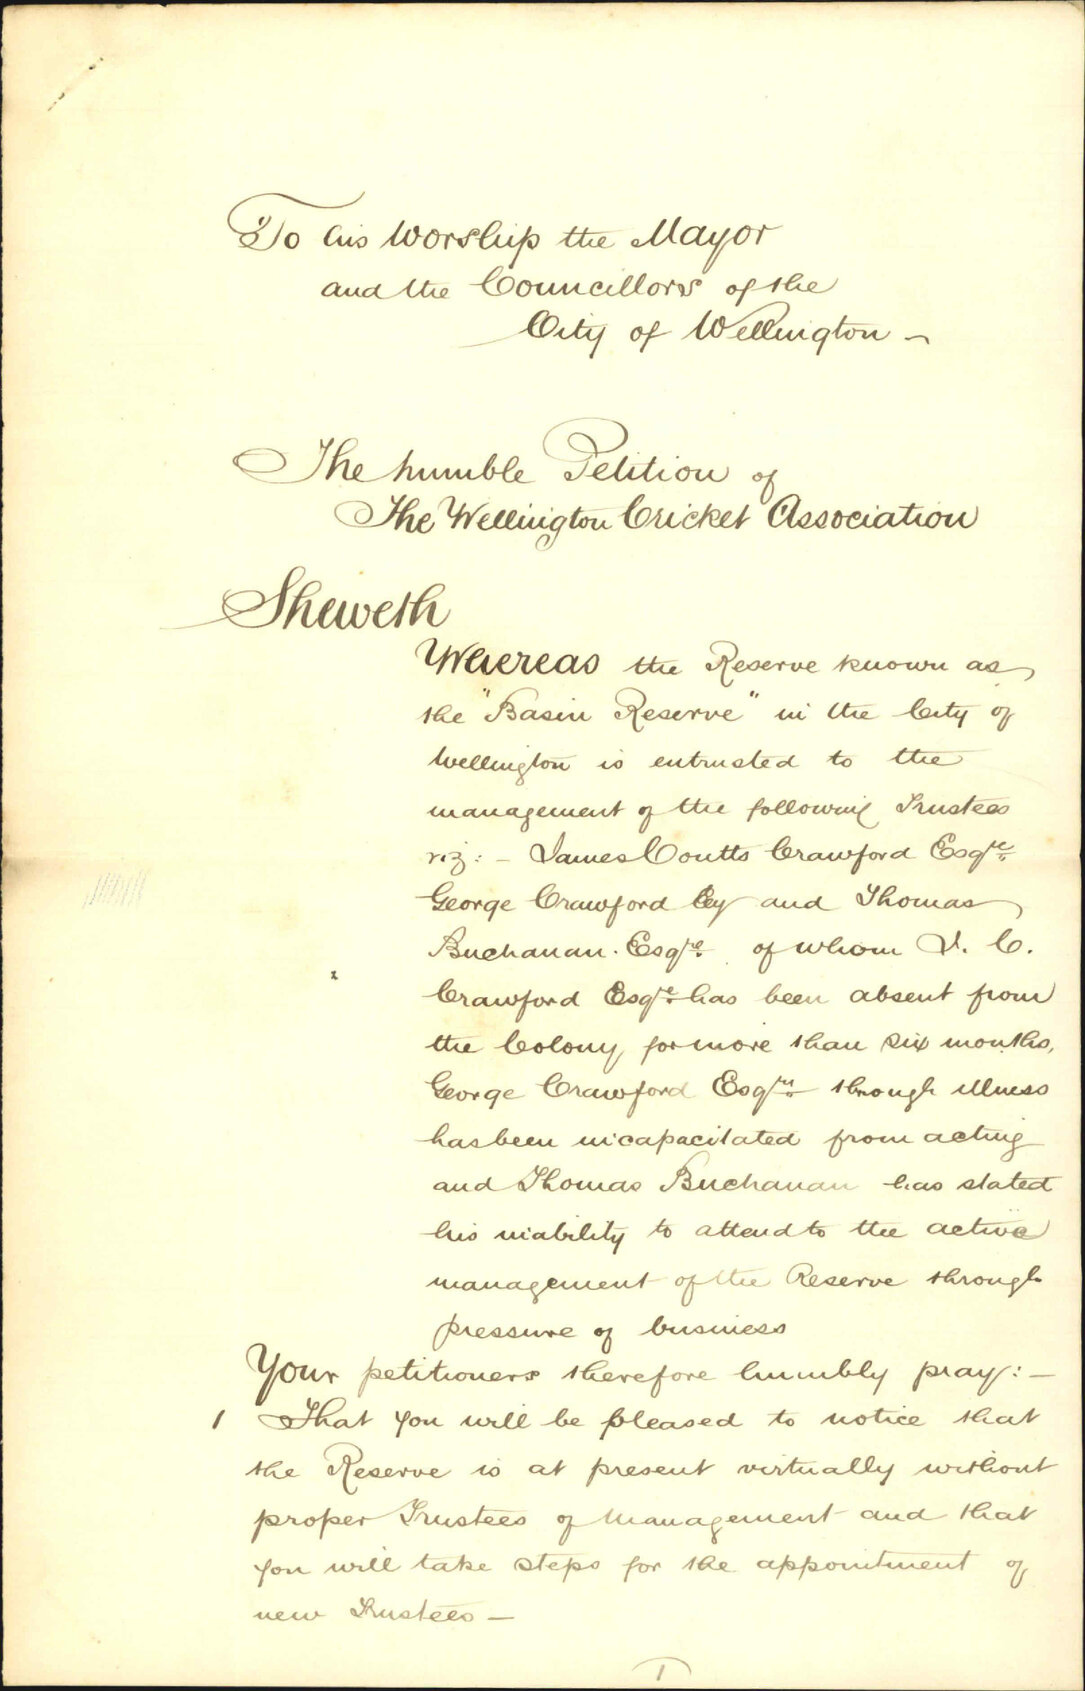 To his Worship the Mayor
and the Councillors of the
City of Wellington –
The humble Petition of
The Wellington Cricket Association
Sheweth
Whereas the Reserve known as
the "Basin Reserve" in the City of
Wellington is entrusted to the
management of the following Trustees
viz: – James Coutts Crawford Esqre
George Crawford and Thomas
Buchanan. Esqre of whom J. C.
Crawford Esqre has been absent from
the Colony for more than six months,
George Crawford Esqre through illness
has been incapacitated from acting
and Thomas Buchanan has stated
his inability to attend to the active
management of the Reserve through
pressure of business
Your petitioners therefore humbly pray: –
1 That you will be pleased to notice that
the Reserve is at present virtually without
proper Trustees of Management and that
you will take steps for the appointment of
new Trustees –
1